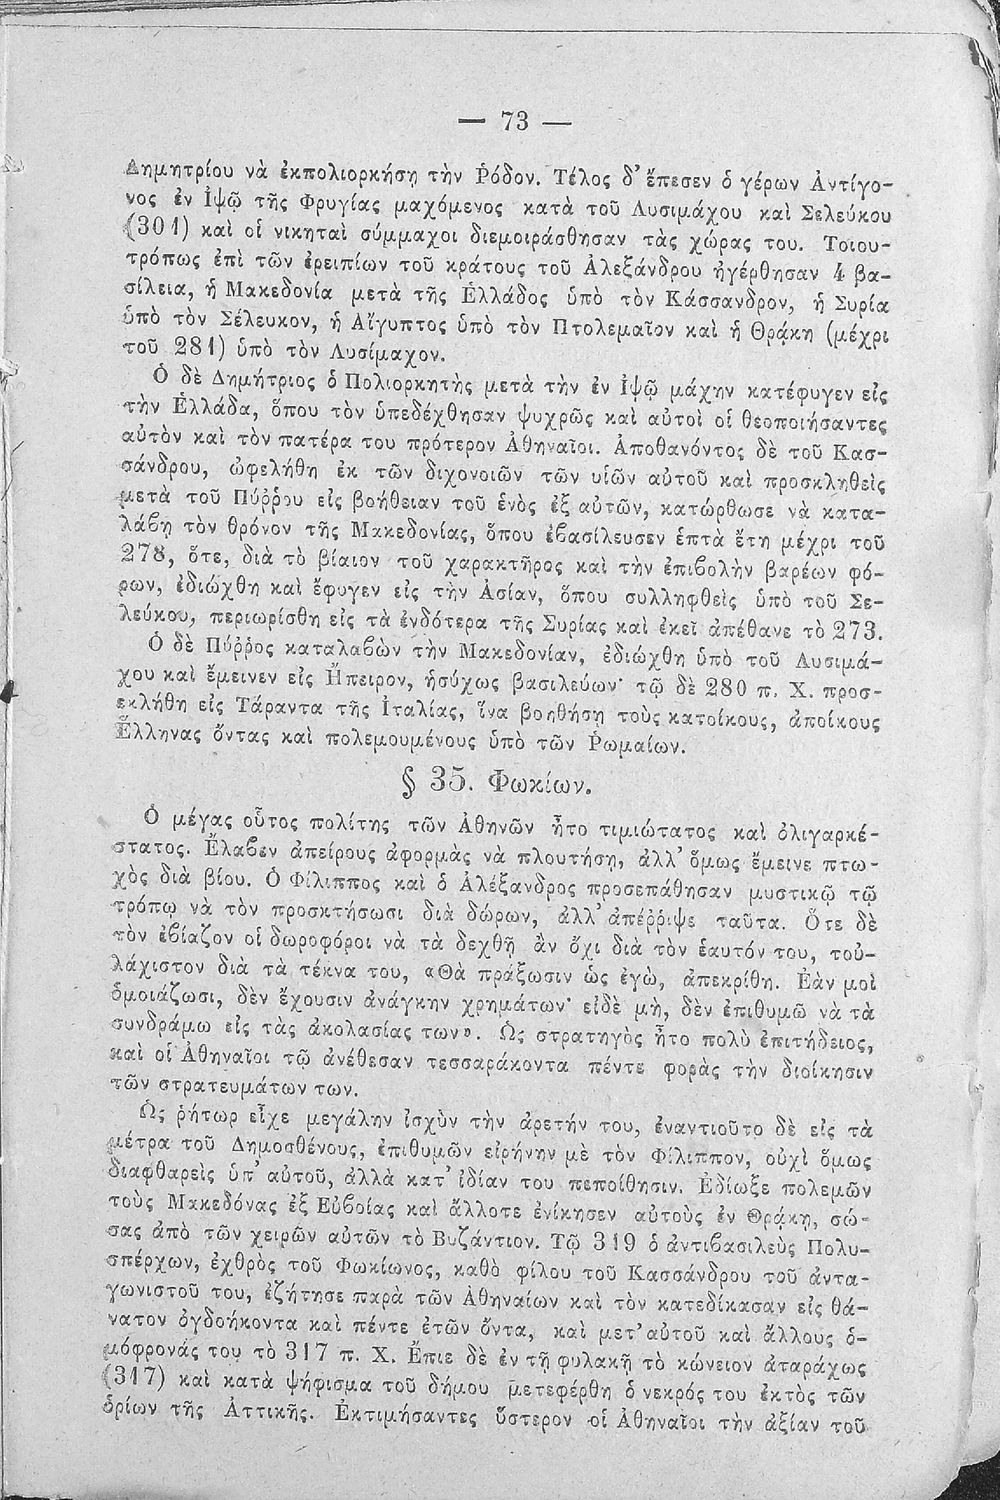 — 73 —
Δημητρίου νὰ ἐκπολιορκήσῃ τὴν Ῥόδον. Τέλος δ' ἔπεσεν ὁ γέρων Ἀντίγο-
νος ἐν Ἰψῷ τῆς Φρυγίας μαχόμενος κατὰ τοῦ Λυσιμάχου καὶ Σελεύκου
(301) καὶ οἱ νικηταὶ σύμμαχοι διεμοιράσθησαν τὰς χώρας του. Τοιου-
τρόπως ἐπὶ τῶν ἐρειπίων τοῦ κράτους τοῦ Ἀλεξάνδρου ἠγέρθησαν 4 βα-
σίλεια, ἡ Μακεδονία μετὰ τῆς Ἑλλάδος ὑπὸ τὸν Κάσσανδρον, ἡ Συρία
ὑπὸ τὸν Σέλευκον, ἡ Αἴγυπτος ὑπὸ τὸν Πτολεμαῖον καὶ ἡ Θρᾴκη (μέχρι
τοῦ 281) ὑπὸ τὸν Λυσίμαχον.
Ὁ δὲ Δημήτριος ὁ Πολιορκητὴς μετὰ τὴν ἐν Ἰψῷ μάχην κατέφυγεν εἰς
τὴν Ἑλλάδα, ὅπου τὸν ὑπεδέχθησαν ψυχρῶς καὶ αὐτοὶ οἱ θεοποιήσαντες
αὐτὸν καὶ τὸν πατέρα του πρότερον Ἀθηναῖοι. Ἀποθανόντος δὲ τοῦ Κασ-
σάνδρου, ὠφελήθη ἐκ τῶν διχονοιῶν τῶν υἱῶν αὐτοῦ καὶ προσκληθεὶς
μετὰ τοῦ Πύῤῥου εἰς βοήθειαν τοῦ ἑνὸς ἐξ αὐτῶν, κατώρθωσε νὰ κατα-
λάβῃ τὸν θρόνον τῆς Μακεδονίας, ὅπου ἐβασίλευσεν ἑπτὰ ἔτη μέχρι τοῦ
278, ὅτε, διὰ τὸ βίαιον τοῦ χαρακτῆρος καὶ τὴν ἐπιβολὴν βαρέων φό-
ρων, ἐδιώχθη καὶ ἔφυγεν εἰς τὴν Ἀσίαν, ὅπου συλληφθεὶς ὑπὸ τοῦ Σε-
λεύκου, περιωρίσθη εἰς τὰ ἐνδότερα τῆς Συρίας καὶ ἐκεῖ ἀπέθανε τὸ 273.
Ὁ δὲ Πύῤῥος καταλαβὼν τὴν Μακεδονίαν, ἐδιώχθη ὑπὸ τοῦ Λυσιμά-
χου καὶ ἔμεινεν εἰς Ἤπειρον, ἡσύχως βασιλεύων· τῷ δὲ 280 π. Χ. προσ-
εκλήθη εἰς Τάραντα τῆς Ἰταλίας, ἵνα βοηθήσῃ τοὺς κατοίκους, ἀποίκους
Ἕλληνας ὄντας καὶ πολεμουμένους ὑπὸ τῶν Ῥωμαίων.
§ 35. Φωκίων.
Ὁ μέγας οὗτος πολίτης τῶν Ἀθηνῶν ἦτο τιμιώτατος καὶ ὀλιγαρκέ-
στατος. Ἔλαβεν ἀπείρους ἀφορμὰς νὰ πλουτήσῃ, ἀλλ' ὅμως ἔμεινε πτω-
χὸς διὰ βίου. Ὁ Φίλιππος καὶ ὁ Ἀλέξανδρος προσεπάθησαν μυστικῷ τῷ
τρόπῳ νὰ τὸν προσκτήσωσι διὰ δώρων, ἀλλ' ἀπέῤῥιψε ταῦτα. Ὅτε δὲ
τὸν ἐβίαζον οἱ δωροφόροι νὰ τὰ δεχθῇ ἂν ὄχι διὰ τὸν ἑαυτόν του, τοὐ-
λάχιστον διὰ τὰ τέκνα του, «Θὰ πράξωσιν ὡς ἐγώ, ἀπεκρίθη. Ἐὰν μοὶ
ὁμοιάζωσι, δὲν ἔχουσιν ἀνάγκην χρημάτων· εἰδὲ μή, δὲν ἐπιθυμῶ νὰ τὰ
συνδράμω εἰς τὰς ἀκολασίας των». Ὡς στρατηγὸς ἦτο πολὺ ἐπιτήδειος,
καὶ οἱ Ἀθηναῖοι τῷ ἀνέθεσαν τεσσαράκοντα πέντε φορὰς τὴν διοίκησιν
τῶν στρατευμάτων των.
Ὡς ῥήτωρ εἶχε μεγάλην ἰσχὺν τὴν ἀρετήν του, ἐναντιοῦτο δὲ εἰς τὰ
μέτρα τοῦ Δημοσθένους, ἐπιθυμῶν εἰρήνην μὲ τὸν Φίλιππον, οὐχὶ ὅμως
διαφθαρεὶς ὑπ' αὐτοῦ, ἀλλὰ κατ' ἰδίαν του πεποίθησιν. Ἐδίωξε πολεμῶν
τοὺς Μακεδόνας ἐξ Εὐβοίας καὶ ἄλλοτε ἐνίκησεν αὐτοὺς ἐν Θρᾴκῃ, σώ-
σας ἀπὸ τῶν χειρῶν αὐτῶν τὸ Βυζάντιον. Τῷ 319 ὁ ἀντιβασιλεὺς Πολυ-
σπέρχων, ἐχθρὸς τοῦ Φωκίωνος, καθὸ φίλου τοῦ Κασσάνδρου τοῦ ἀντα-
γωνιστοῦ του, ἐζήτησε παρὰ τῶν Ἀθηναίων καὶ τὸν κατεδίκασαν εἰς θά-
νατον ὀγδοήκοντα καὶ πέντε ἐτῶν ὄντα, καὶ μετ' αὐτοῦ καὶ ἄλλους ὁ-
μόφρονάς του τὸ 317 π. Χ. Ἔπιε δὲ ἐν τῇ φυλακῇ τὸ κώνειον ἀταράχως
(317) καὶ κατὰ ψήφισμα τοῦ δήμου μετεφέρθη ὁ νεκρός του ἐκτὸς τῶν
ὁρίων τῆς Ἀττικῆς. Ἐκτιμήσαντες ὕστερον οἱ Ἀθηναῖοι τὴν ἀξίαν τοῦ